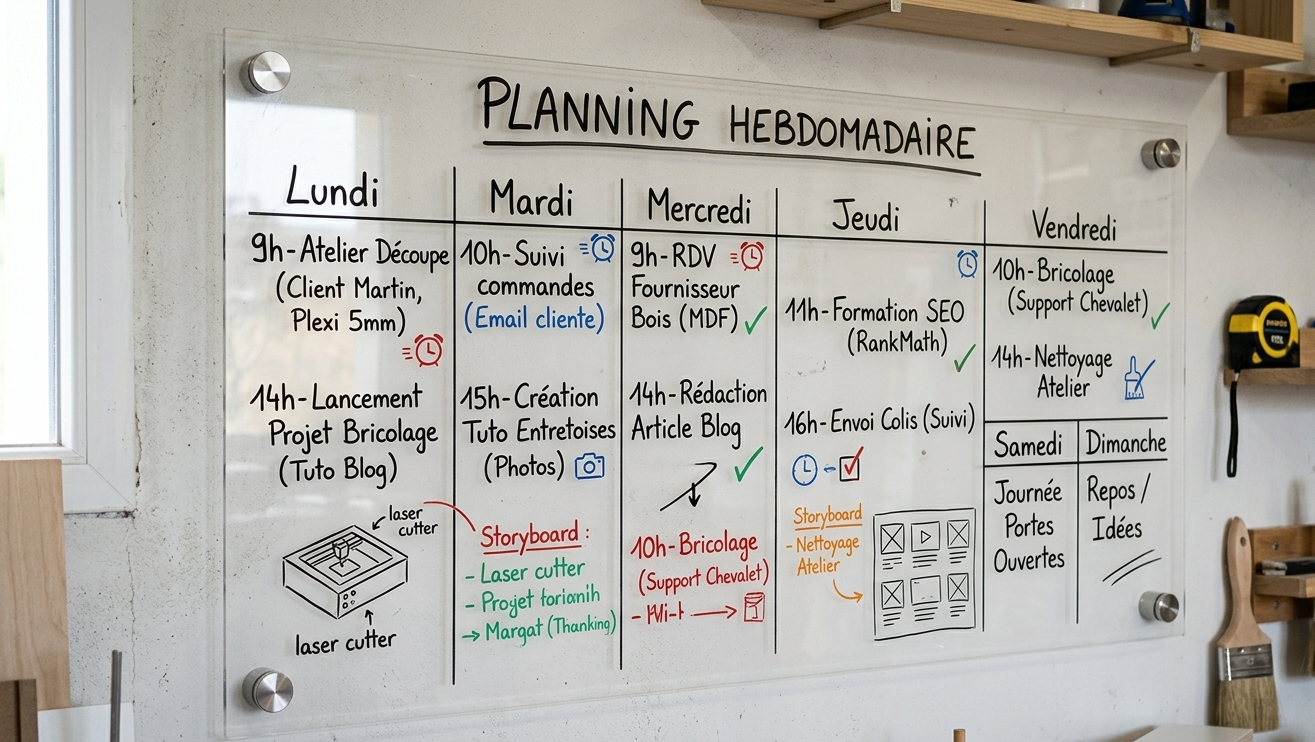 PLANNING HEBDOMADAIRE
Lundi
9h-Atelier Découpe
(Client Martin,
Plexi 5mm)
14h-Lancement
Projet Bricolage
(Tuto Blog)
laser
cutter
laser cutter
Mardi
10h-Suivi
commandes
(Email cliente)
15h-Création
Tuto Entretoises
(Photos)
Storyboard :
- Laser cutter
- Projet forianih
→ Margat (Thanking)
Mercredi
9h-RDV
Fournisseur
Bois (MDF)
14h-Rédaction
Article Blog
10h-Bricolage
(Support Chevalet)
Jeudi
11h-Formation SEO
(RankMath)
16h-Envoi Colis (Suivi)
Storyboard
- Nettoyage
Atelier
Vendredi
10h-Bricolage
(Support Chevalet)
14h-Nettoyage
Atelier
Samedi
Journée
Portes
Ouvertes
Dimanche
Repos /
Idées